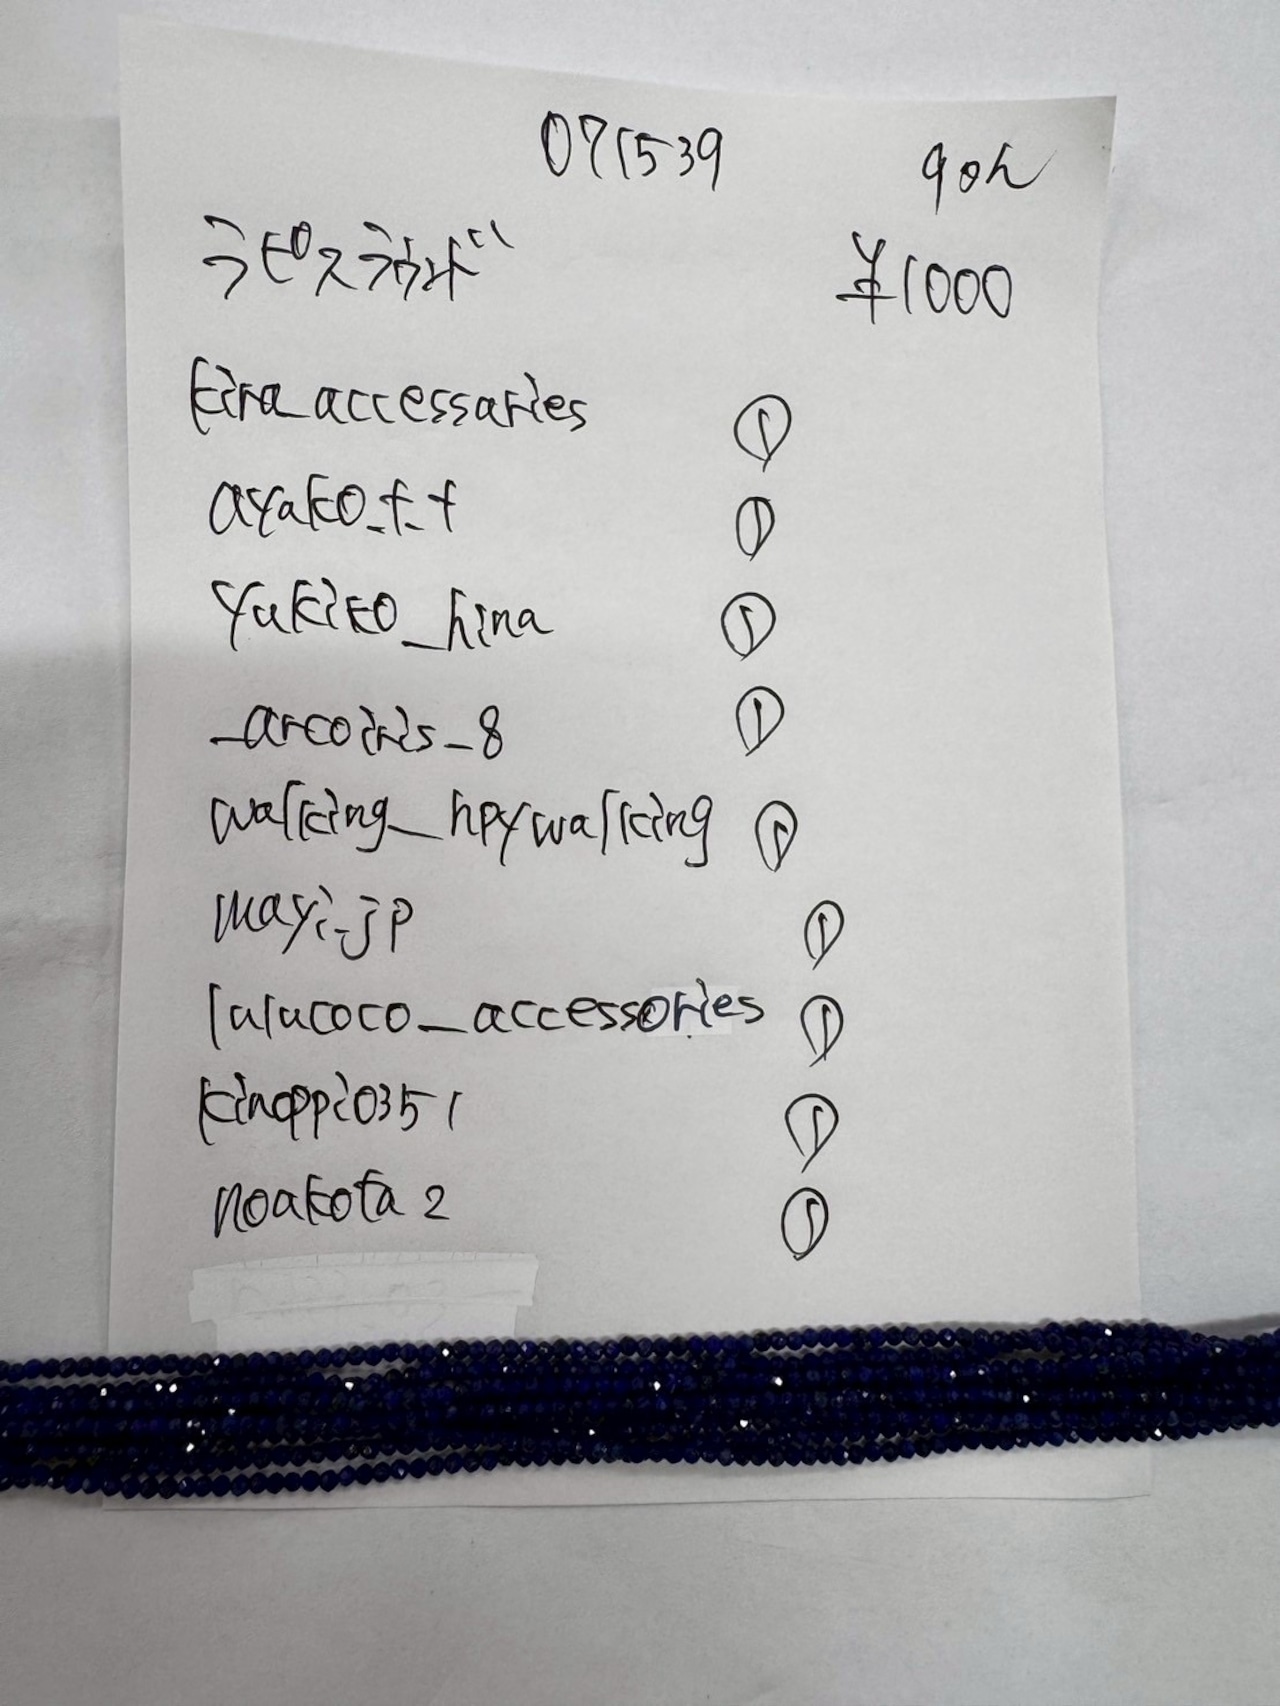 071539 90h
ラピスラウンド ¥1000
kira_accessaries ①
ayako_t_t ①
yukiko_hina ①
_arcoiris_8 ①
walking_hpywalking ①
mayi_jp ①
lulucoco_accessories ①
kinoppi0351 ①
noakota2 ①